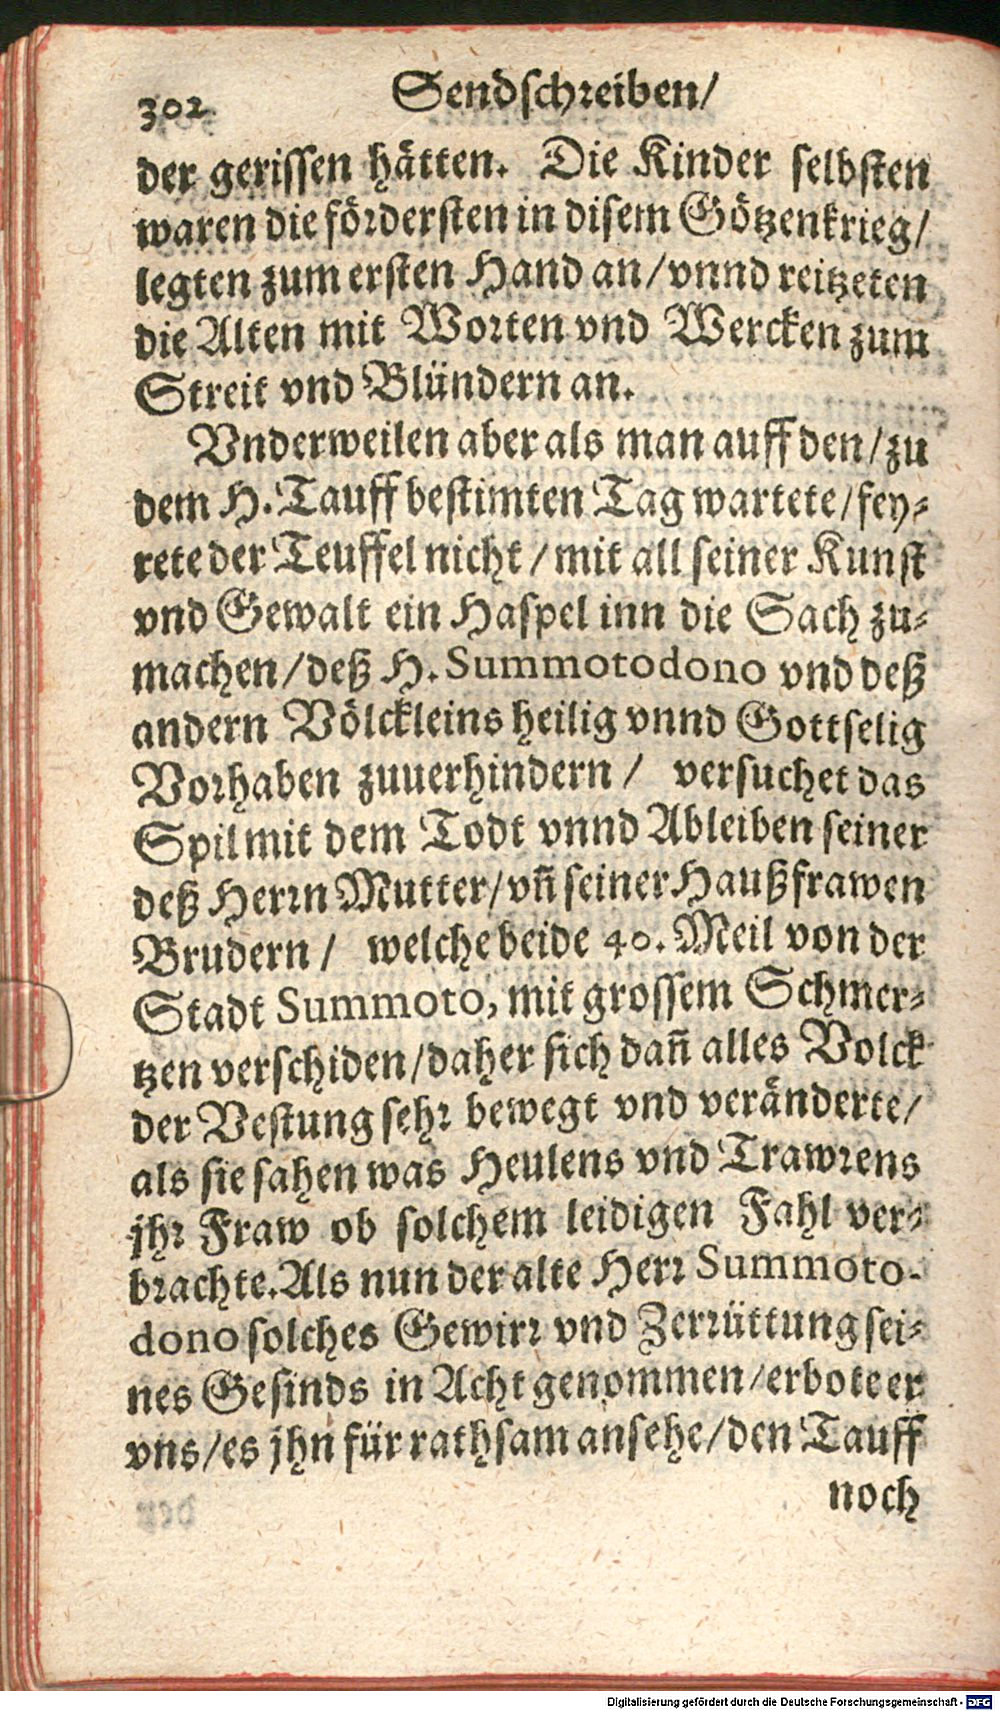 302 Sendschreiben/
der gerissen hätten. Die Kinder selbsten
waren die fördersten in disem Götzenkrieg/
legten zum ersten Hand an/vnnd reitzeten
die Alten mit Worten vnd Wercken zum
Streit vnd Blündern an.
Vnderweilen aber als man auff den/zu
dem H. Tauff bestimten Tag wartete/fey-
rete der Teuffel nicht/mit all seiner Kunst
vnd Gewalt ein Haspel inn die Sach zu-
machen/deß H. Summotodono vnd deß
andern Völckleins heilig vnnd Gottselig
Vorhaben zuuerhindern/ versuchet das
Spil mit dem Todt vnnd Ableiben seiner
deß Herrn Mutter/vñ seiner Haußfrawen
Brudern/ welche beide 40. Meil von der
Stadt Summoto, mit grossem Schmer-
tzen verschiden/daher sich dañ alles Volck
der Vestung sehr bewegt vnd veränderte/
als sie sahen was Heulens vnd Trawrens
jhr Fraw ob solchem leidigen Fahl ver-
brachte. Als nun der alte Herr Summoto-
dono solches Gewirr vnd Zerrüttung sei-
nes Gesinds in Acht genommen/erbote er
vns/es jhn für rathsam ansehe/den Tauff
noch
Digitalisierung gefördert durch die Deutsche Forschungsgemeinschaft - DFG